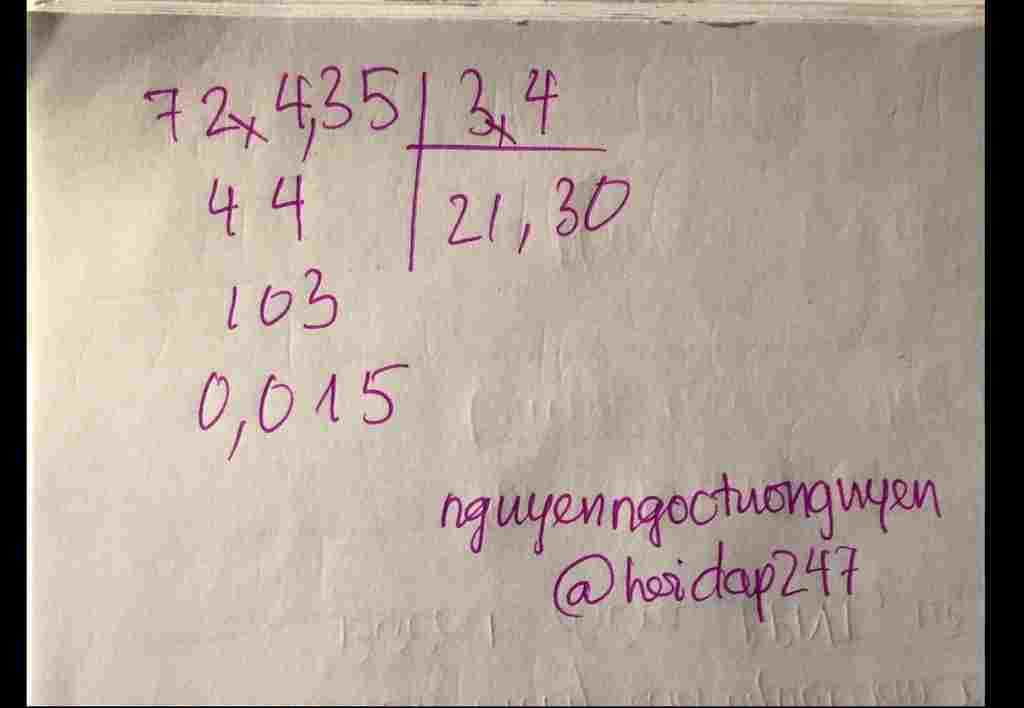 72x4,35 3x4
44 21,30
103
0,015
nguyenngoctuonguyen
@hoidap247